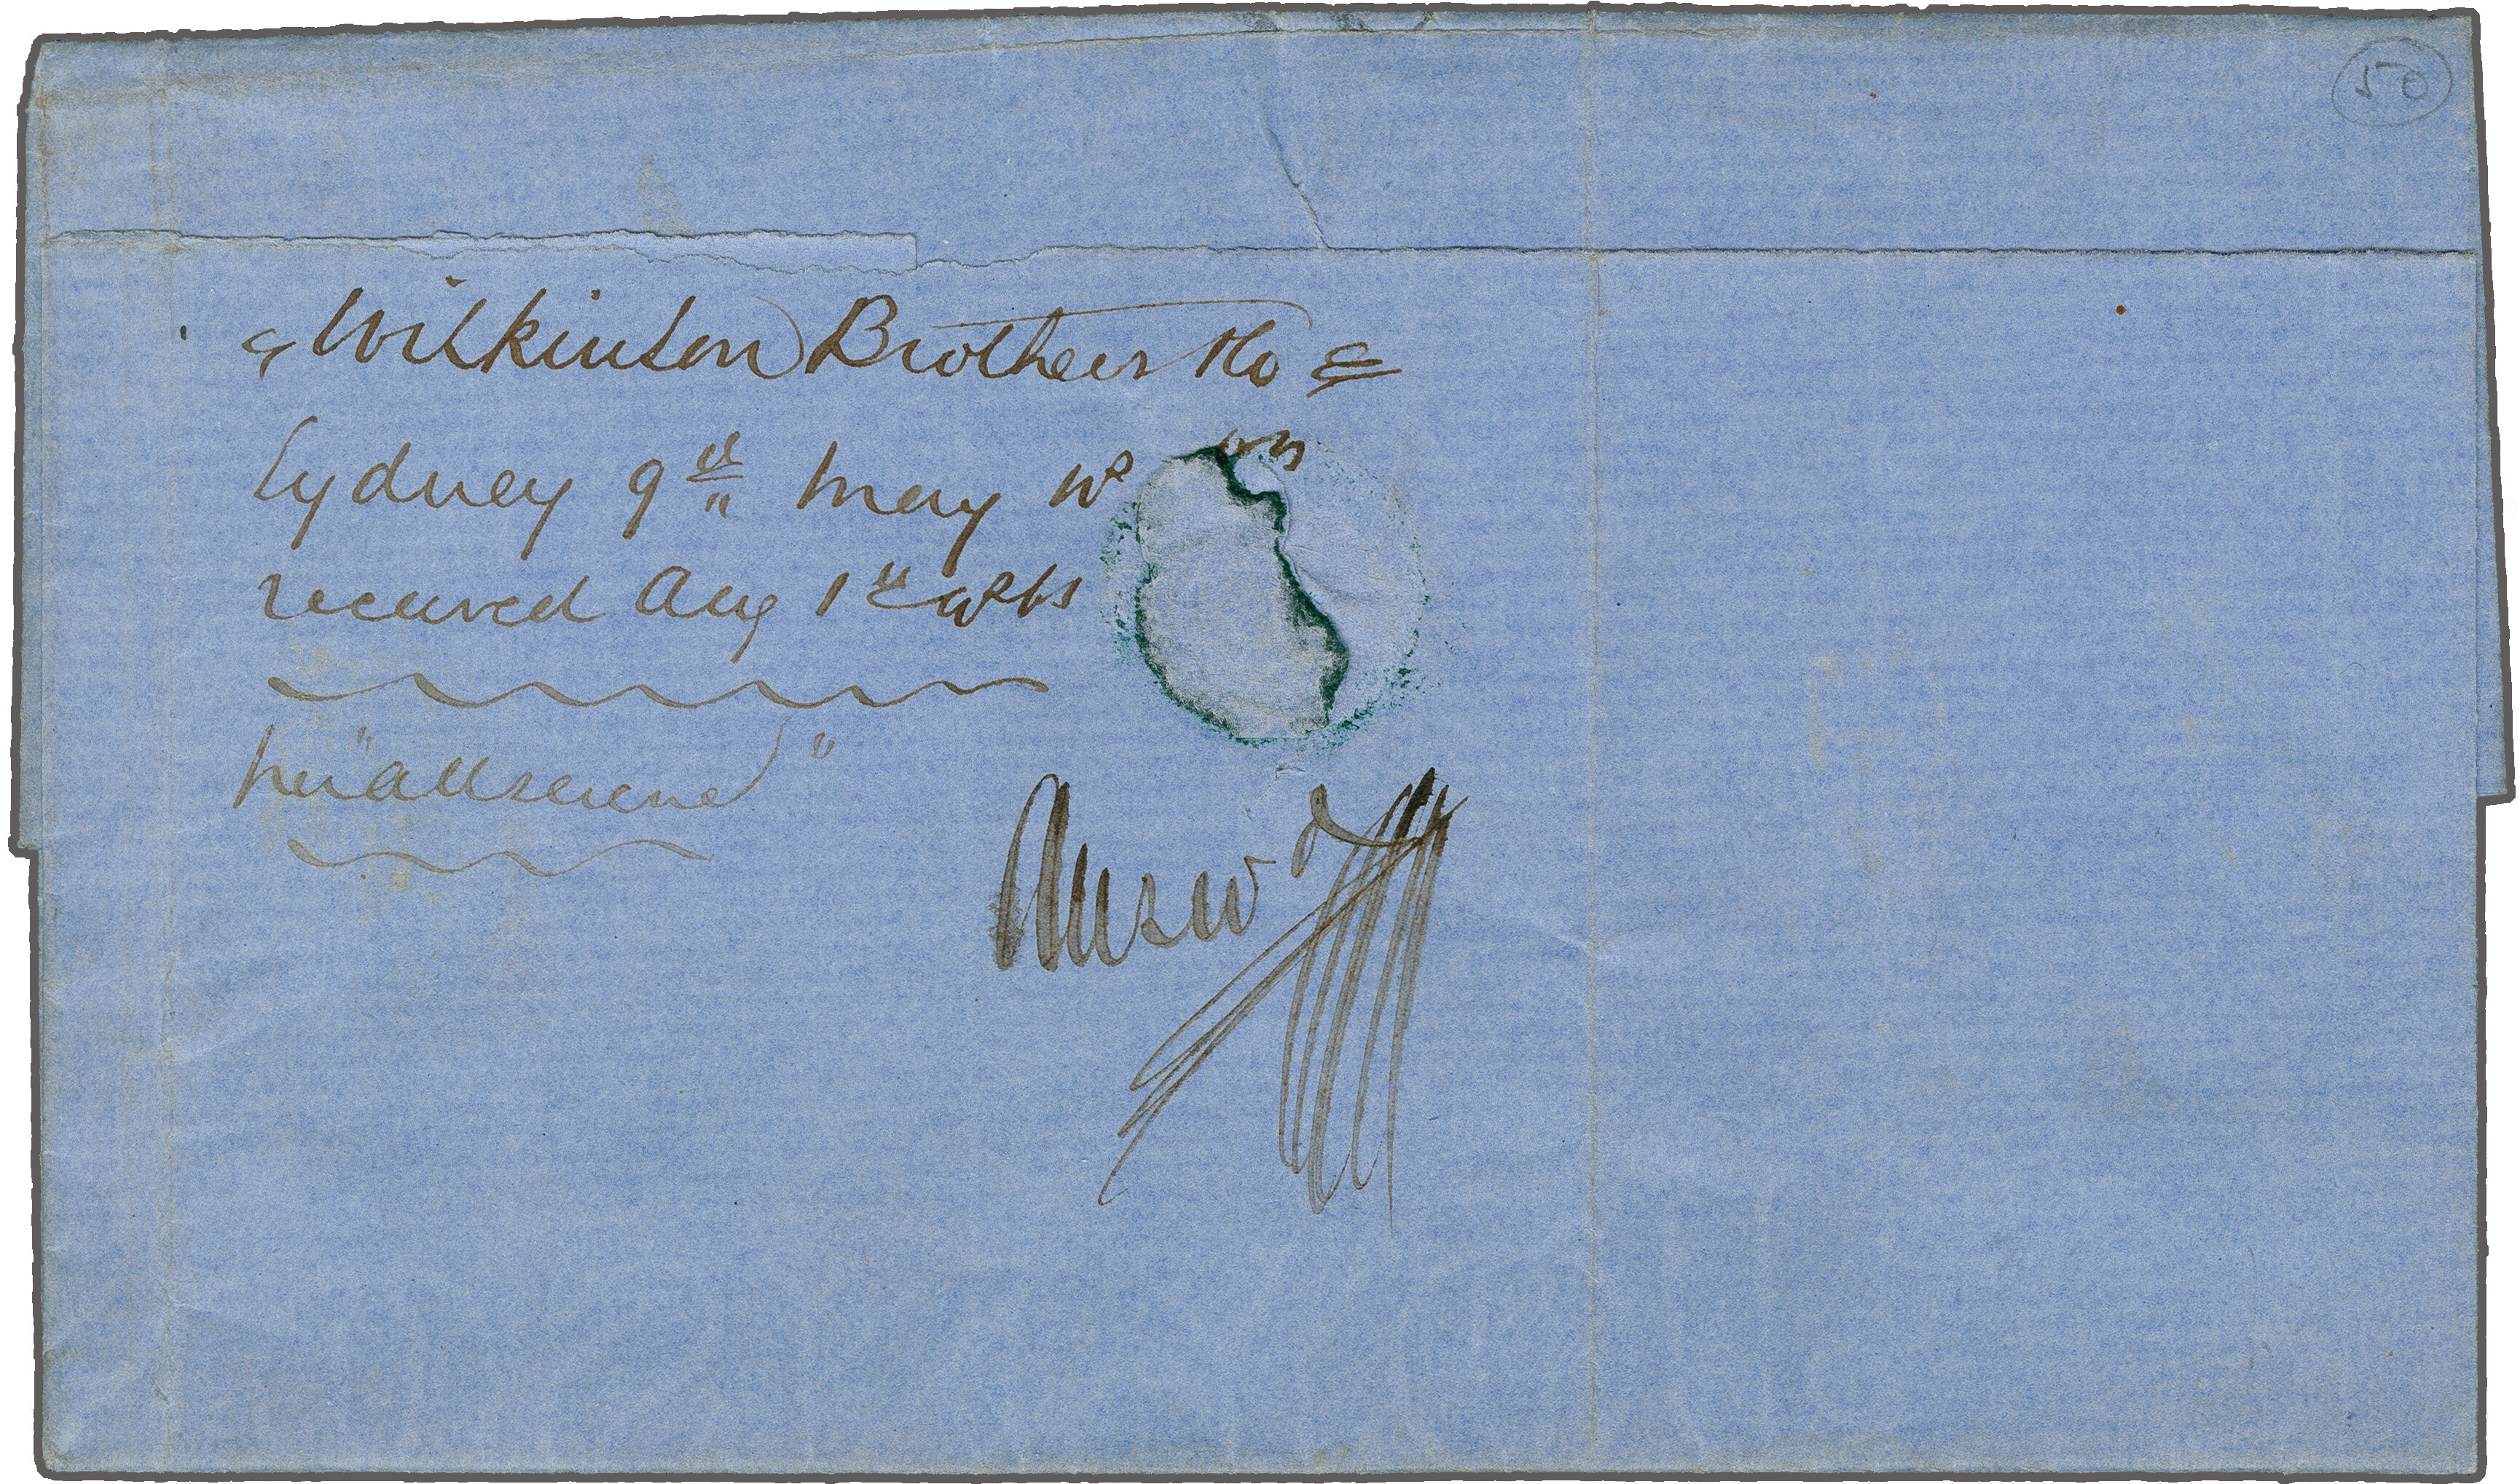 50
Wilkinson Brothers & Co
Sydney 9th May
received Aug 1st
per "All serene"
Answd